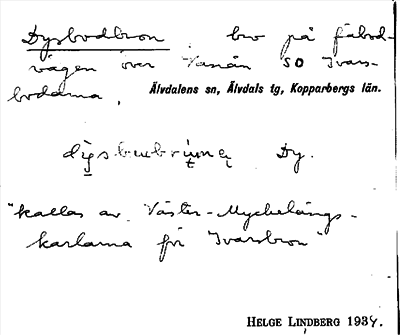 Dysbodbron, bro på fäbod-
vägen över Vanån SO Ivars-
bodarna.
Älvdalens sn, Älvdals tg, Kopparbergs län.
Dy.
"kallas av Väster-Myckelängs-
karlarna för Ivarsbron"
HELGE LINDBERG 1934.